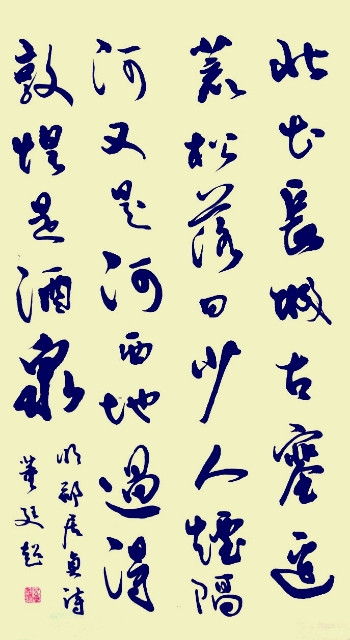 北出長城古塞邊
荒松落日少人煙隔
河又是河西地過得
敦煌是酒泉
明郭居貞詩
董超